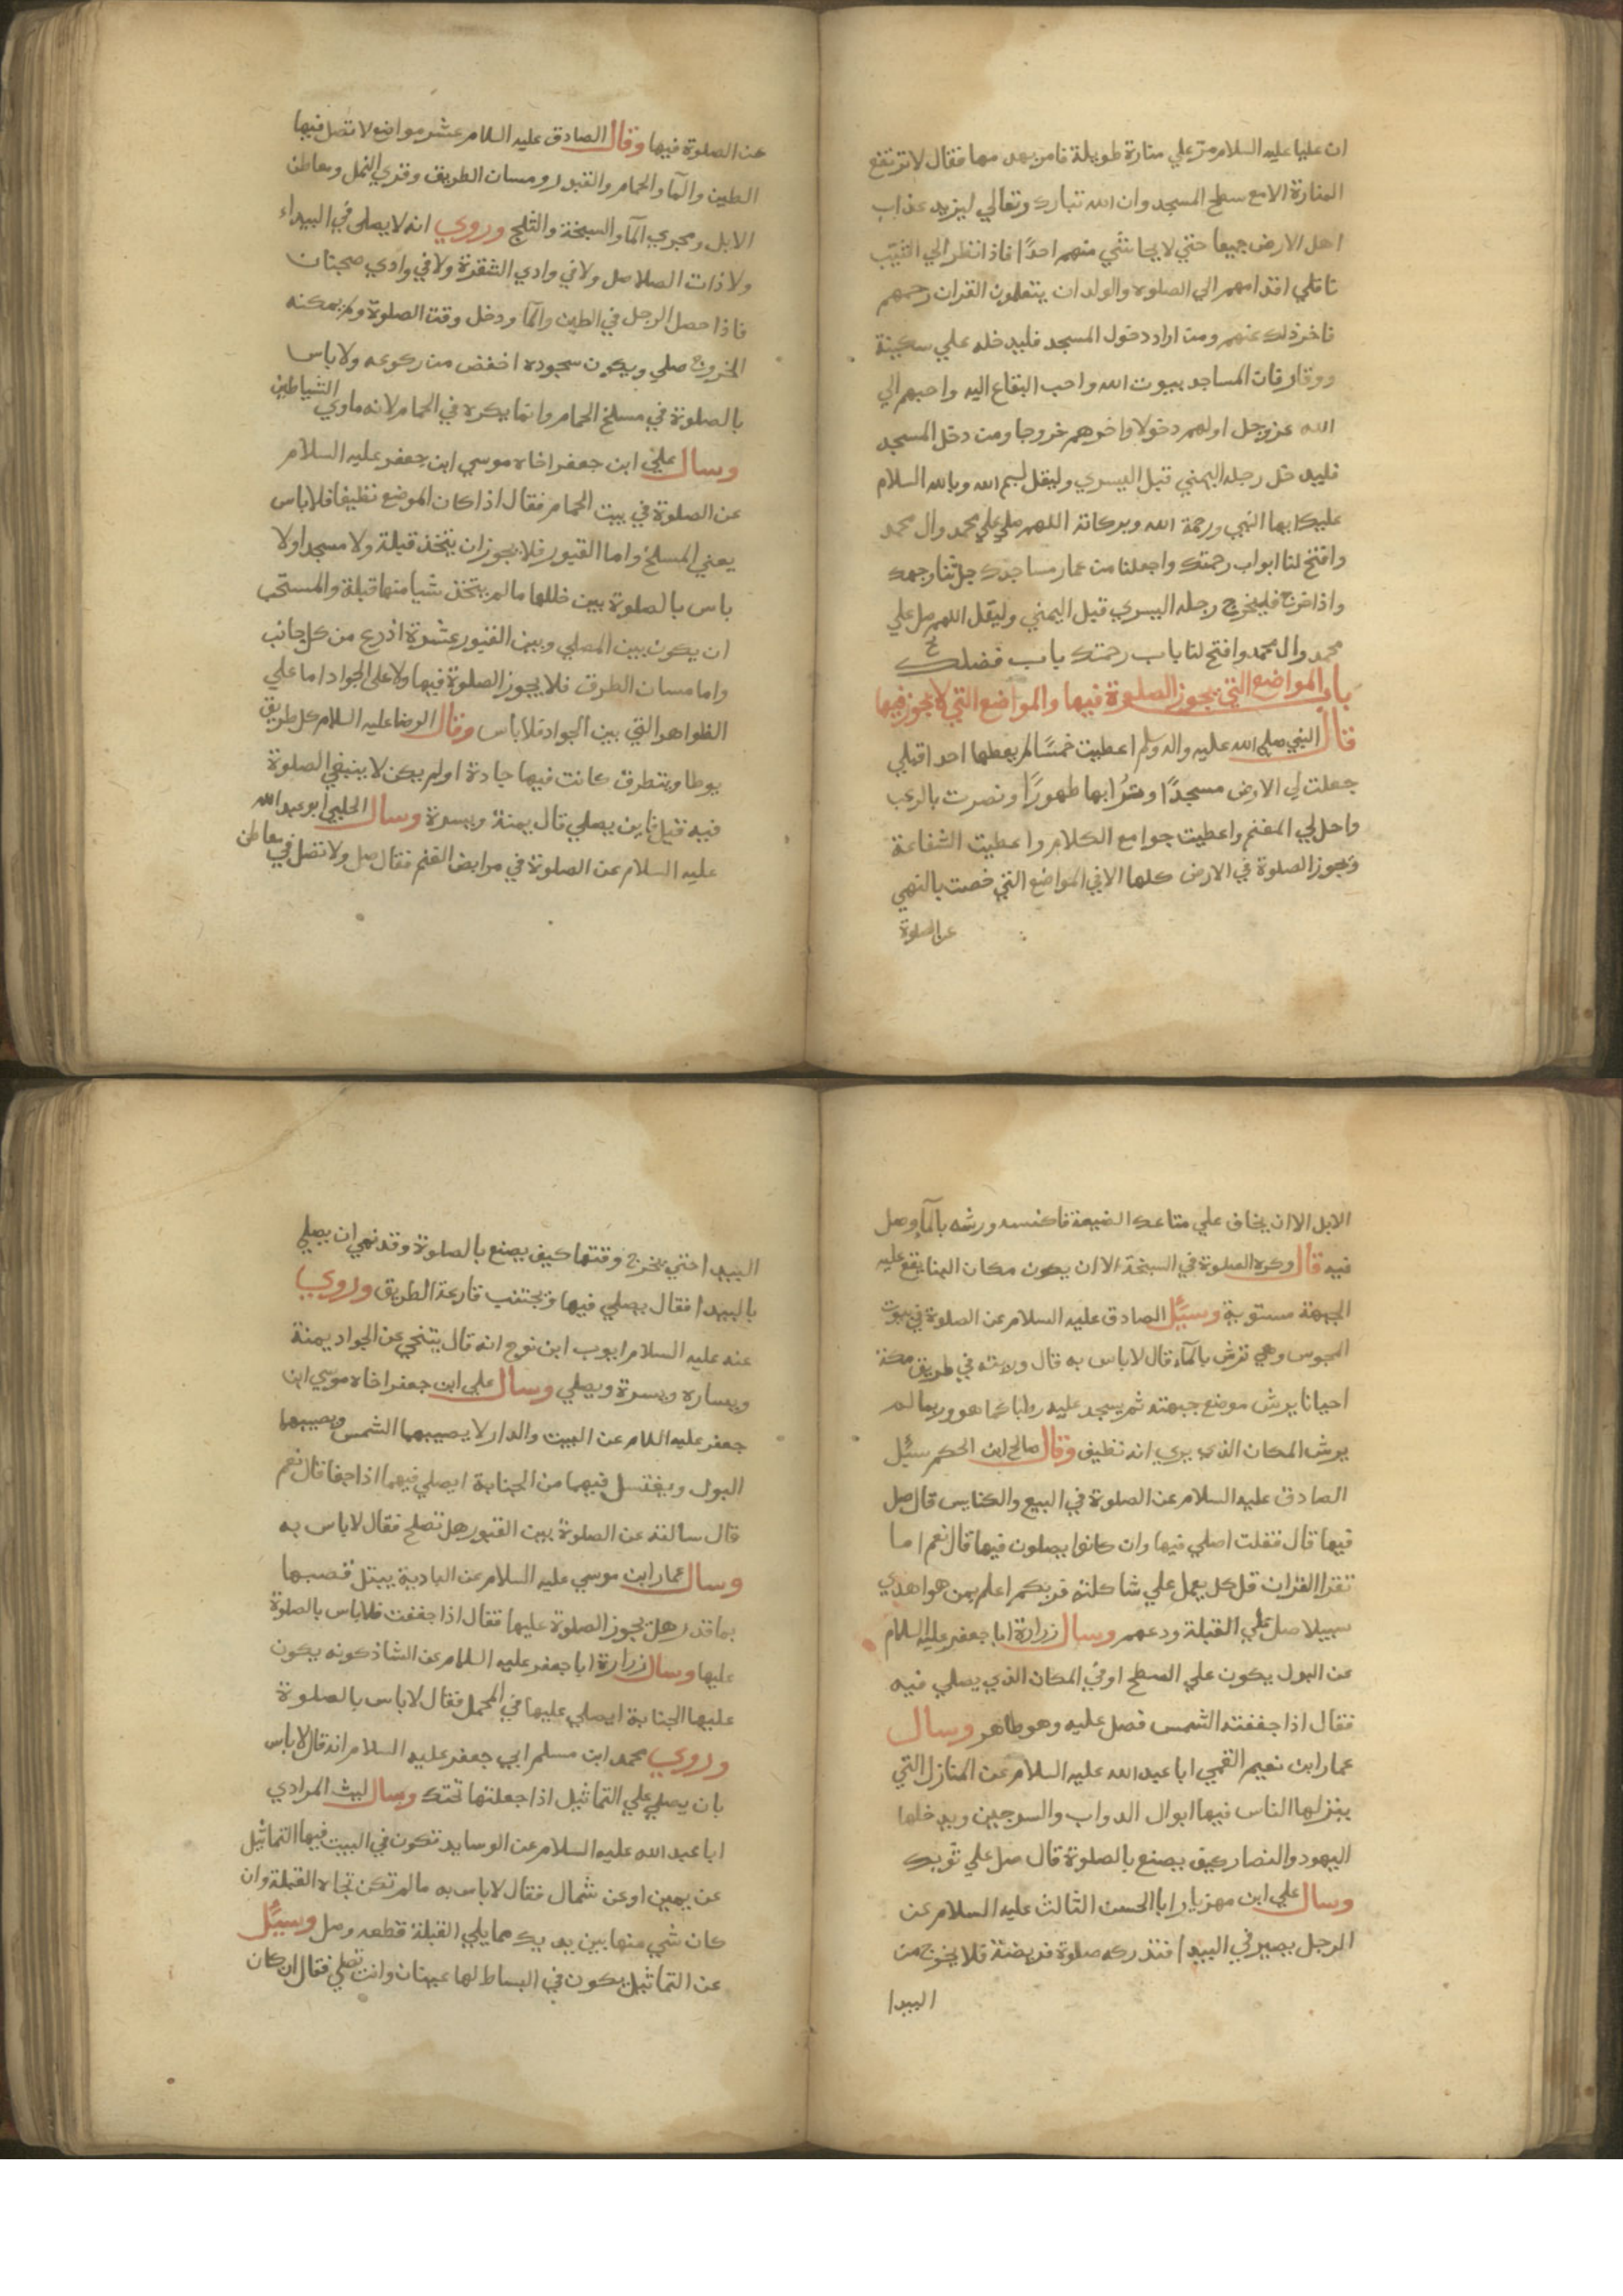 ان عليا عليه السلام مر علي منارة طويلة فامر بهدمها فقال لا ترتفع
المنارة الا مع سطح المسجد وان الله تبارك وتعالي ليزيد عذاب
اهل الارض جميعا حتي لا يحاشي منهم احدًا فاذا نظر الي الشيب
ناقلي اقدامهم الي الصلوة والولدان يتعلمون القران رحمهم
فاخر ذلك عنهم ومن اراد دخول المسجد فليدخله علي سكينة
ووقار فان المساجد بيوت الله واحب البقاع اليه واحبهم الي
الله عز وجل اولهم دخولا واخرهم خروجا ومن دخل المسجد
فليدخل رجله اليمني قبل اليسري وليقل بسم الله وبالله السلام
عليك ايها النبي ورحمة الله وبركاته اللهم صلي علي محمد وال محمد
وافتح لنا ابواب رحمتك واجعلنا من عمار مساجدك جل ثنا وجهك
واذا خرج فليخرج رجله اليسري قبل اليمني وليقل اللهم صل علي
محمد وال محمد وافتح لنا باب رحمتك باب فضلك
باب المواضع التي يجوز الصلوة فيها والمواضع التي لا يجوز فيها
قال النبي صلي الله عليه واله وسلم اعطيت خمسًا لم يعطها احد قبلي
جعلت لي الارض مسجدًا وترابها طهورًا ونصرت بالرعب
واحل لي المغنم واعطيت جوامع الكلام واعطيت الشفاعة
وتجوز الصلوة في الارض كلها الا في المواضع التي خصت بالنهي
عن الصلوة
عن الصلوة فيها وقال الصادق عليه السلام عشر مواضع لا تصل فيها
الطين والمآ والحمام والقبور ومسان الطريق وقري النمل ومعاطن
الابل ومجري المآ والسبخة والثلج وروي انه لا يصلي في البيداء
ولا ذات الصلاصل ولا في وادي الشقرة ولا في وادي ضجنان
فاذا حصل الرجل في الطين والمآ ودخل وقت الصلوة ولم يمكنه
الخروج صلي ويكون سجوده اخفض من ركوعه ولا باس
بالصلوة في مسلخ الحمام وانما يكره في الحمام لانه ماوي الشياطين
وسال علي ابن جعفر اخاه موسي ابن جعفر عليه السلام
عن الصلوة في بيت الحمام فقال اذا كان الموضع نظيفا فلا باس
يعني المسلخ واما القبور فلا يجوز ان يتخذ قبلة ولا مسجدا ولا
باس بالصلوة بين خللها ما لم يتخذ شيا منها قبلة والمستحب
ان يكون بين المصلي وبين القبور عشرة اذرع من كل جانب
واما مسان الطرق فلا يجوز الصلوة فيها ولا علي الجواد اما علي
الظواهر التي بين الجواد فلا باس وقال الرضا عليه السلام كل طريق
يوطا ويتطرق كانت فيها جادة او لم يكن لا ينبغي الصلوة
فيه قيل فاين يصلي قال يمنة ويسرة وسال الحلبي ابو عبد الله
عليه السلام عن الصلوة في مرابض الغنم فقال صل ولا تصل في معاطن
الابل الا ان يخاف علي متاعك الضيعة فاكنسه ورشه بالمآ وصل
فيه قال وكره الصلوة في السبخة الا ان يكون مكان لينا يقع عليه
الجبهة مستوية وسئل الصادق عليه السلام عن الصلوة في بيوت
المجوس وهي ترش بالماء قال لا باس به قال ورايته في طريق مكة
احيانا يرش موضع جبهته ثم يسجد عليه رطبا كما هو وربما لم
يرش المكان الذي يري انه نظيف وقال صالح ابن الحكم سئل
الصادق عليه السلام عن الصلوة في البيع والكنايس قال صل
فيها قال فقلت اصلي فيها وان كانوا يصلون فيها قال نعم اما
تقرا القران قل كل يعمل علي شاكلته فربكم اعلم بمن هو اهدي
سبيلا صل علي القبلة ودعهم وسال زرارة ابا جعفر عليه السلام
عن البول يكون علي السطح او في المكان الذي يصلي فيه
فقال اذا جففته الشمس فصل عليه وهو طاهر وسال
عمار ابن نعيم القمي ابا عبد الله عليه السلام عن المنازل التي
ينزلها الناس فيها ابوال الدواب والسرجين ويدخلها
اليهود والنصار كيف يصنع بالصلوة قال صل علي ثوبك
وسال علي ابن مهزيار ابا الحسن الثالث عليه السلام عن
الرجل يصير في البيدا فتدركه صلوة فريضة فلا يخرج من
البيدا
البيدا حتي يخرج وقتها كيف يصنع بالصلوة وقد نهي ان يصلي
بالبيدا فقال يصلي فيها ويجتنب قارعة الطريق وروي
عنه عليه السلام ايوب ابن نوح انه قال يتنحي عن الجواد يمنة
ويساره ويسرة ويصلي وسال علي ابن جعفر اخاه موسي ابن
جعفر عليه السلام عن البيت والدار لا يصيبهما الشمس ويصيبهما
البول ويغتسل فيهما من الجنابة ايصلي فيهما اذا جفا قال نعم
قال سالته عن الصلوة بين القبور هل تصلح فقال لا باس به
وسال عمار ابن موسي عليه السلام عن البادية يبتل قصبها
بماقذر هل يجوز الصلوة عليها فقال اذا جففت فلا باس بالصلوة
عليها وسال زرارة ابا جعفر عليه السلام عن الشاذكونه يكون
عليها الجنابة ايصلي عليها في المحمل فقال لا باس بالصلوة
وروي محمد ابن مسلم ابي جعفر عليه السلام انه قال لا باس
بان يصلي علي التماثيل اذا جعلتها تحتك وسال ليث المرادي
ابا عبد الله عليه السلام عن الوسايد تكون في البيت فيها التماثيل
عن يمين او عن شمال فقال لا باس به ما لم تكن تجاه القبلة وان
كان شي منها بين يديك مما يلي القبلة قطعه وصل وسئل
عن التماثيل يكون في البساط لها عينان وانت تصلي فقال ان كان